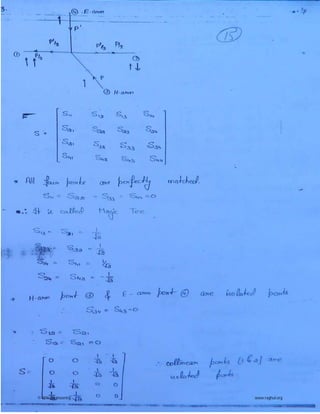 ④ E-arm
P'
P'/√2 P'/√2 P/√2
① P/√2 ②
P
③ H-arm
S₁₁ S₁₂ S₁₃ S₁₄
S = S₂₁ S₂₂ S₂₃ S₂₄
S₃₁ S₃₂ S₃₃ S₃₄
S₄₁ S₄₂ S₄₃ S₄₄
* All four ports are perfectly matched.
S₁₁ = S₂₂ = S₃₃ = S₄₄ = 0
∴ It is called Magic Tee.
S₁₃ = S₃₁ = 1/√2
S₃₂ = 1/√2
S₁₄ = S₄₁ = 1/√2
S₂₄ = S₄₂ = -1/√2
* H-arm port ③ & E-arm port ④ are isolated ports
S₃₄ = S₄₃ = 0
S₁₂ = S₂₁
S₁₂ = S₂₁ = 0
0 0 1/√2 1/√2
S = 0 0 1/√2 -1/√2
1/√2 1/√2 0 0
1/√2 -1/√2 0 0
∴ collinear ports (1 & 2) are
isolated ports.
www.raghul.org